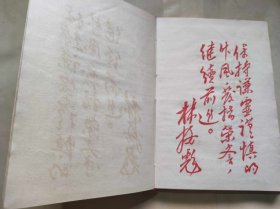 保持谦虚谨慎的
作风,荣誉,
继续前进。
林彪